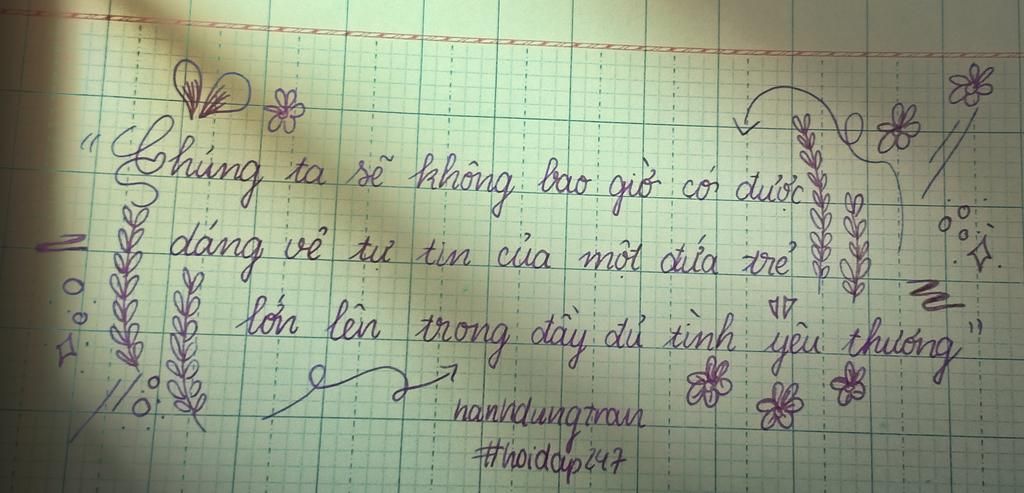 "Chúng ta sẽ không bao giờ có được
dáng vẻ tự tin của một đứa trẻ
lớn lên trong đầy đủ tình yêu thương"
hanhdungtran
#hoidap247